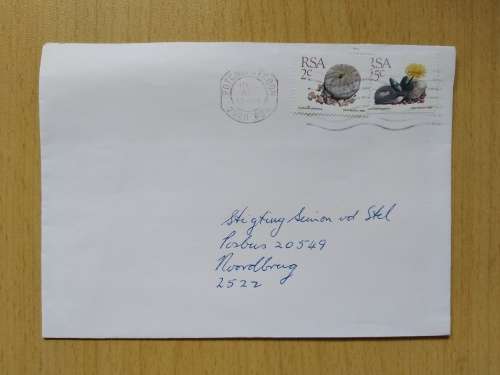 RSA
2c
RSA
25c
Stigting Simon vd Stel
Posbus 20549
Noordbrug
2522